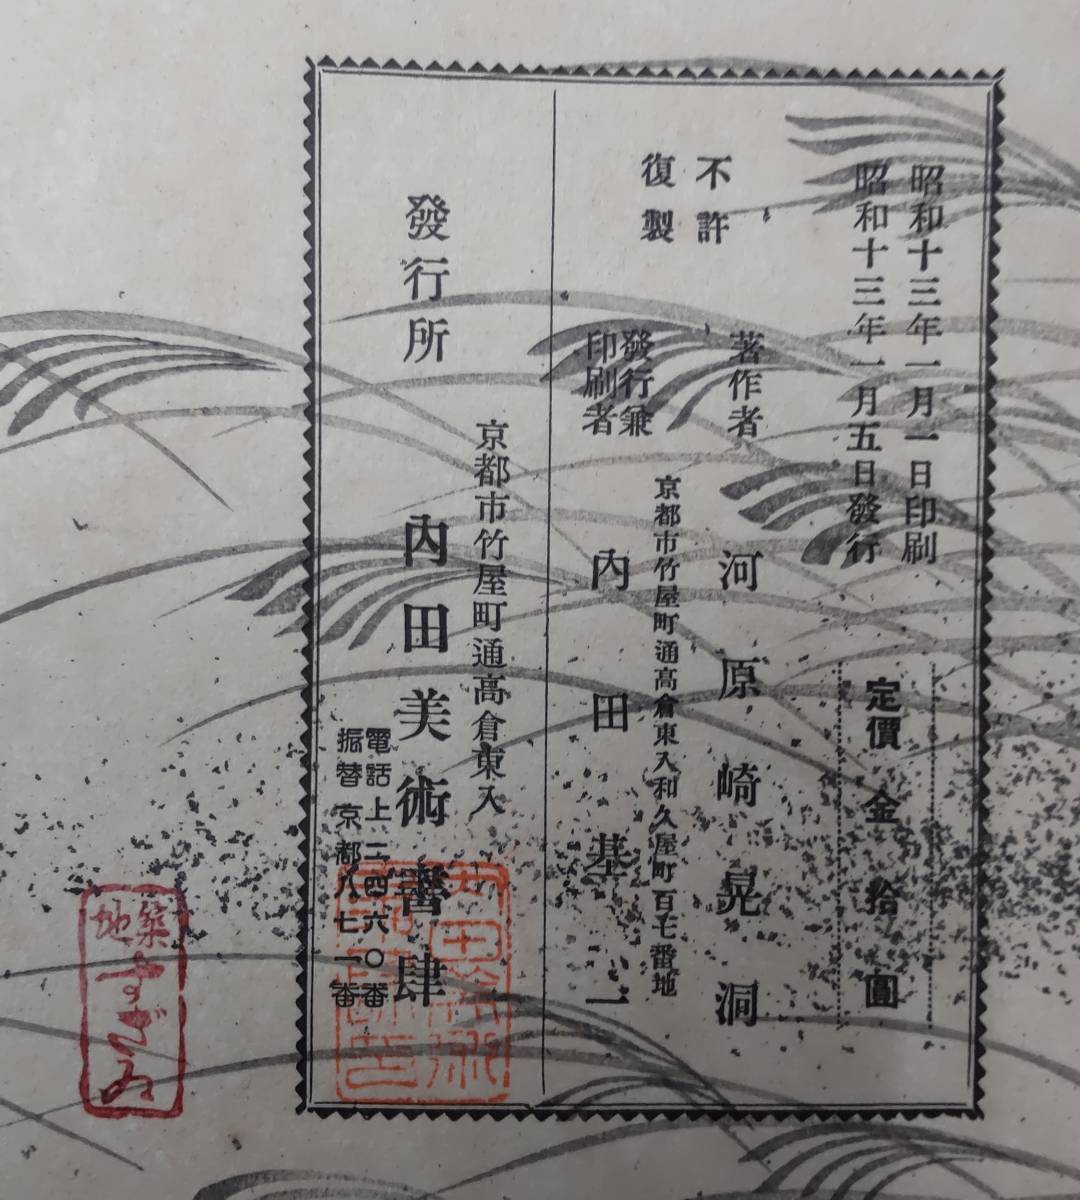 昭和十三年一月一日印刷
昭和十三年一月五日發行
定價金拾圓
不許
復製
著作者 河原崎晃洞
發行兼
印刷者
京都市竹屋町通高倉東入和久屋町百七番地
内田基二
京都市竹屋町通高倉東入
發行所 内田美術書肆
電話上二四六〇番
振替京都八七一番
築地
すゞゐ